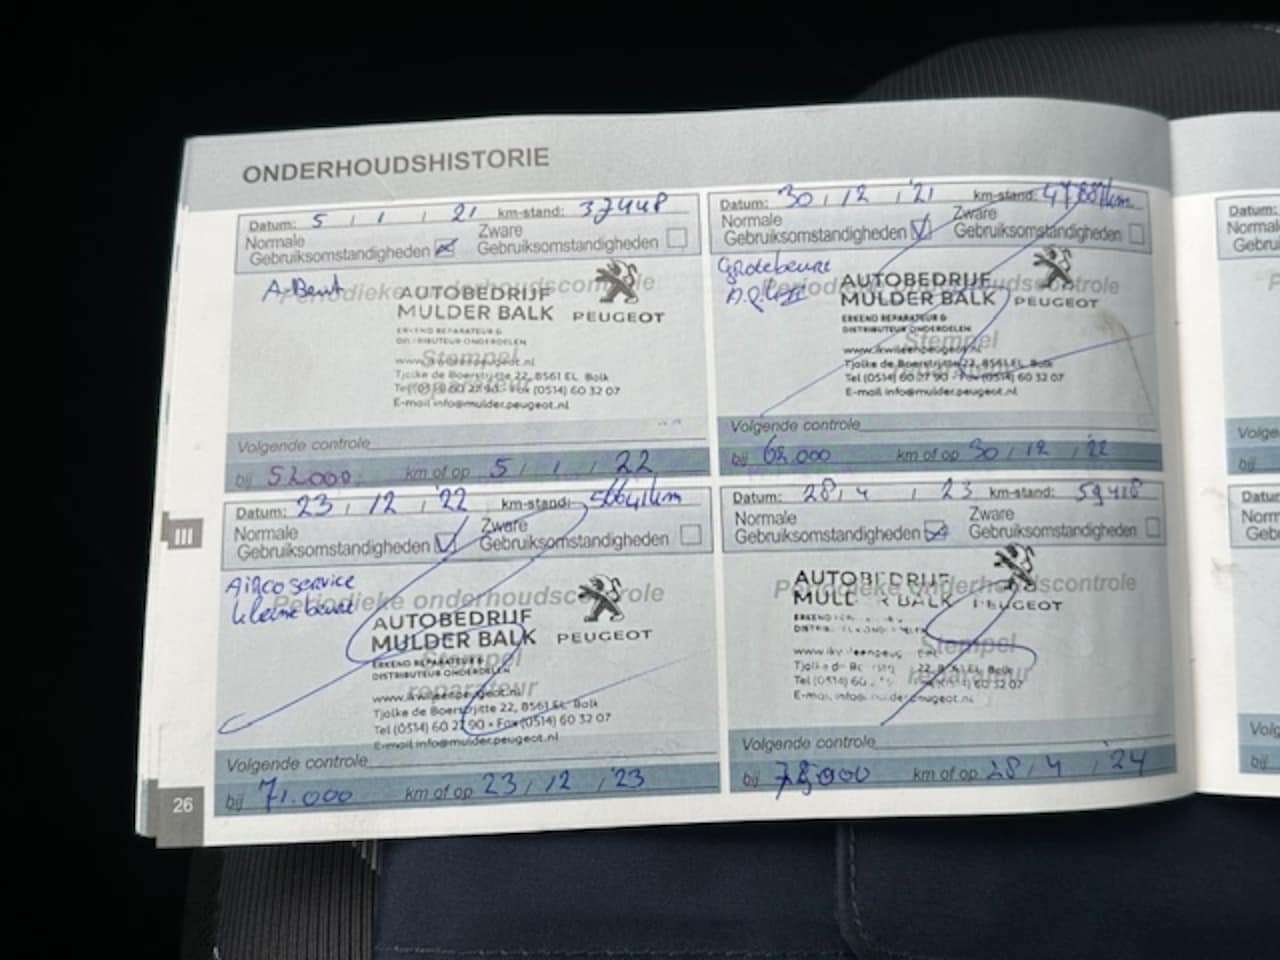 ONDERHOUDSHISTORIE
Datum: 5 / 1 / 21 km-stand: 37448
Normale
Gebruiksomstandigheden
Zware
Gebruiksomstandigheden
A-Beurt
Periodieke onderhoudscontrole
AUTOBEDRIJF
MULDER BALK
PEUGEOT
ERKEND REPARATEUR &
DISTRIBUTEUR ONDERDELEN
Stempel
www.ikwileenpeugeot.nl
Tjalke de Boerstrjitte 22, 8561 EL Balk
Tel (0514) 60 27 90 - Fax (0514) 60 32 07
E-mail info@mulder.peugeot.nl
Volgende controle
bij 52.000 km of op 5 / 1 / 22
Datum: 30 / 12 / '21 km-stand:
Normale
Gebruiksomstandigheden
Zware
Gebruiksomstandigheden
Grote beurt
Periodieke onderhoudscontrole
AUTOBEDRIJF
MULDER BALK
PEUGEOT
ERKEND REPARATEUR &
DISTRIBUTEUR ONDERDELEN
Stempel
www.ikwileenpeugeot.nl
Tjalke de Boerstrjitte 22, 8561 EL Balk
Tel (0514) 60 27 90 - Fax (0514) 60 32 07
E-mail info@mulder.peugeot.nl
Volgende controle
bij 62.000 km of op 30 / 12 / '22
Datum: 23 / 12 / '22 km-stand: 56641km
Normale
Gebruiksomstandigheden
Zware
Gebruiksomstandigheden
Airco service
kleine beurt
Periodieke onderhoudscontrole
AUTOBEDRIJF
MULDER BALK
PEUGEOT
ERKEND REPARATEUR &
DISTRIBUTEUR ONDERDELEN
Stempel
reparateur
www.ikwileenpeugeot.nl
Tjalke de Boerstrjitte 22, 8561 EL Balk
Tel (0514) 60 27 90 • Fax (0514) 60 32 07
E-mail info@mulder.peugeot.nl
Volgende controle
bij 71.000 km of op 23 / 12 / '23
Datum: 28 / 4 / 23 km-stand: 59418
Normale
Gebruiksomstandigheden
Zware
Gebruiksomstandigheden
Periodieke onderhoudscontrole
AUTOBEDRIJF
MULDER BALK
PEUGEOT
Stempel
reparateur
Volgende controle
bij km of op 28 / 4 / '24
III
26
Datum:
Volge
bij
Datum:
Volg
bij